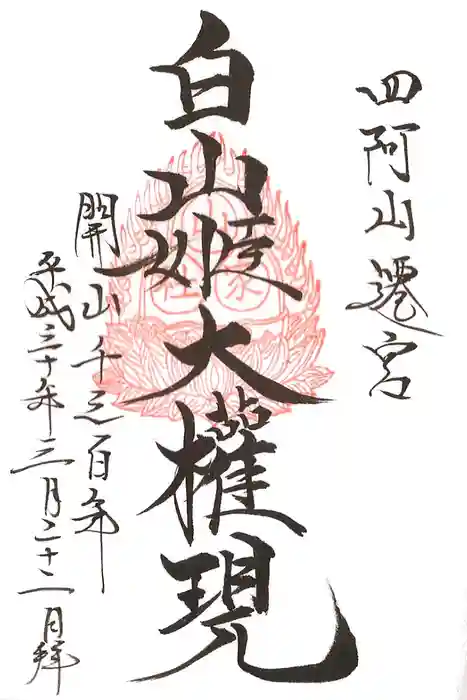 四阿山遷宮
白山媛大權現
開山千三百年
平成三十年三月二十二日拝